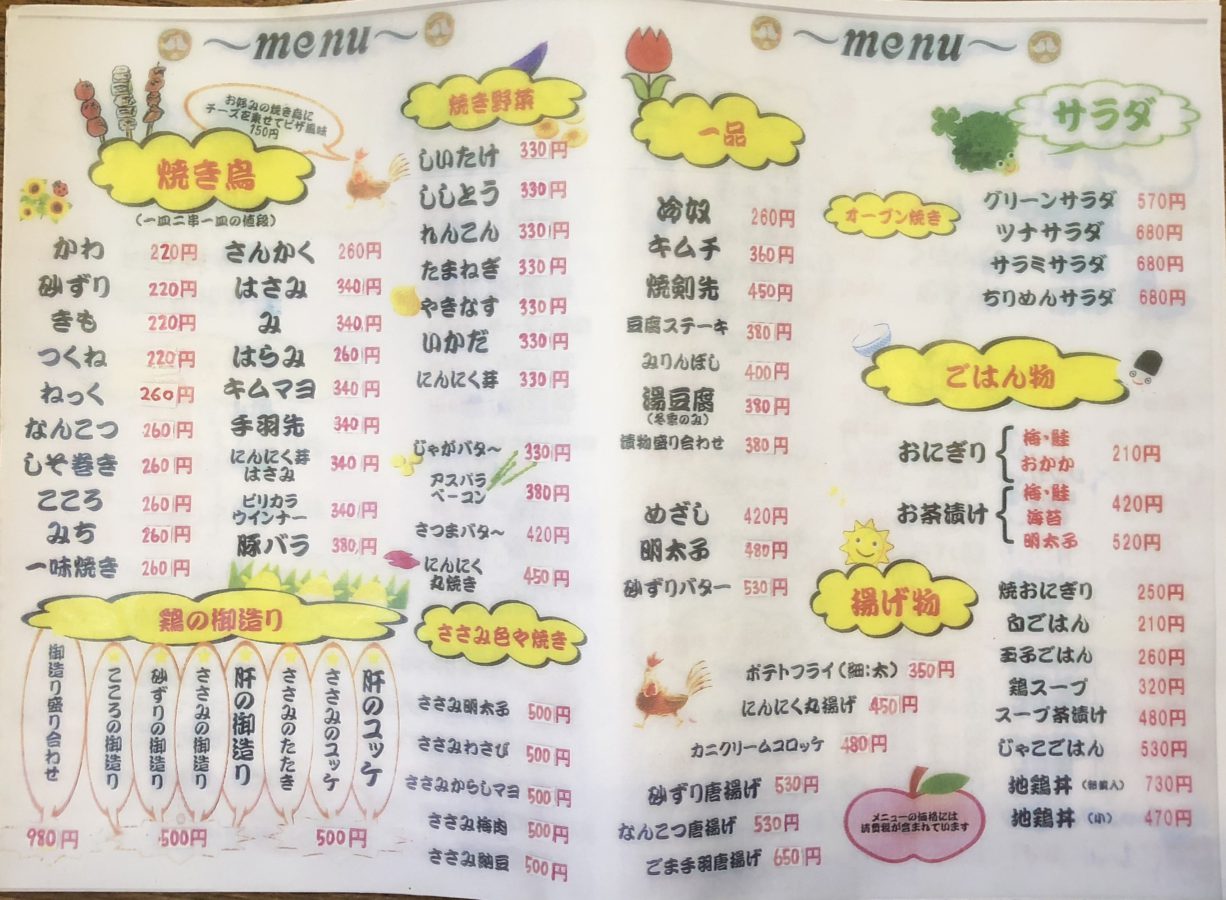 ~menu~
お好みの焼き鳥に
チーズを乗せてピザ風味
150円
焼き鳥
(一皿二串一皿の値段)
かわ 220円
砂ずり 220円
きも 220円
つくね 220円
ねっく 260円
なんこつ 260円
しそ巻き 260円
こころ 260円
みち 260円
一味焼き 260円
さんかく 260円
はさみ 340円
み 340円
はらみ 260円
キムマヨ 340円
手羽先 340円
にんにく芽
はさみ 340円
ピリカラ
ウインナー 340円
豚バラ 380円
鶏の御造り
御造り盛り合わせ
こころの御造り
砂ずりの御造り
ささみの御造り
肝の御造り
ささみのたたき
ささみのユッケ
肝のユッケ
980円 500円 500円
焼き野菜
しいたけ 330円
ししとう 330円
れんこん 330円
たまねぎ 330円
やきなす 330円
いかだ 330円
にんにく芽 330円
じゃがバタ~ 330円
アスパラ
ベーコン 380円
さつまバタ~ 420円
にんにく
丸焼き 450円
ささみ色々焼き
ささみ明太子 500円
ささみわさび 500円
ささみからしマヨ 500円
ささみ梅肉 500円
ささみ納豆 500円
~menu~
一品
冷奴 260円
キムチ 360円
焼剣先 450円
豆腐ステーキ 380円
みりんぼし 400円
湯豆腐 380円
(冬季のみ)
漬物盛り合わせ 380円
めざし 420円
明太子 480円
砂ずりバター 530円
オーブン焼き
サラダ
グリーンサラダ 570円
ツナサラダ 680円
サラミサラダ 680円
ちりめんサラダ 680円
ごはん物
おにぎり 梅・鮭
おかか 210円
お茶漬け 梅・鮭
海苔 420円
明太子 520円
焼おにぎり 250円
白ごはん 210円
玉子ごはん 260円
鶏スープ 320円
スープ茶漬け 480円
じゃこごはん 530円
地鶏丼 730円
地鶏丼 (小) 470円
揚げ物
ポテトフライ(細:太) 350円
にんにく丸揚げ 450円
カニクリームコロッケ 480円
砂ずり唐揚げ 530円
なんこつ唐揚げ 530円
ごま手羽唐揚げ 650円
メニューの価格には
消費税が含まれています